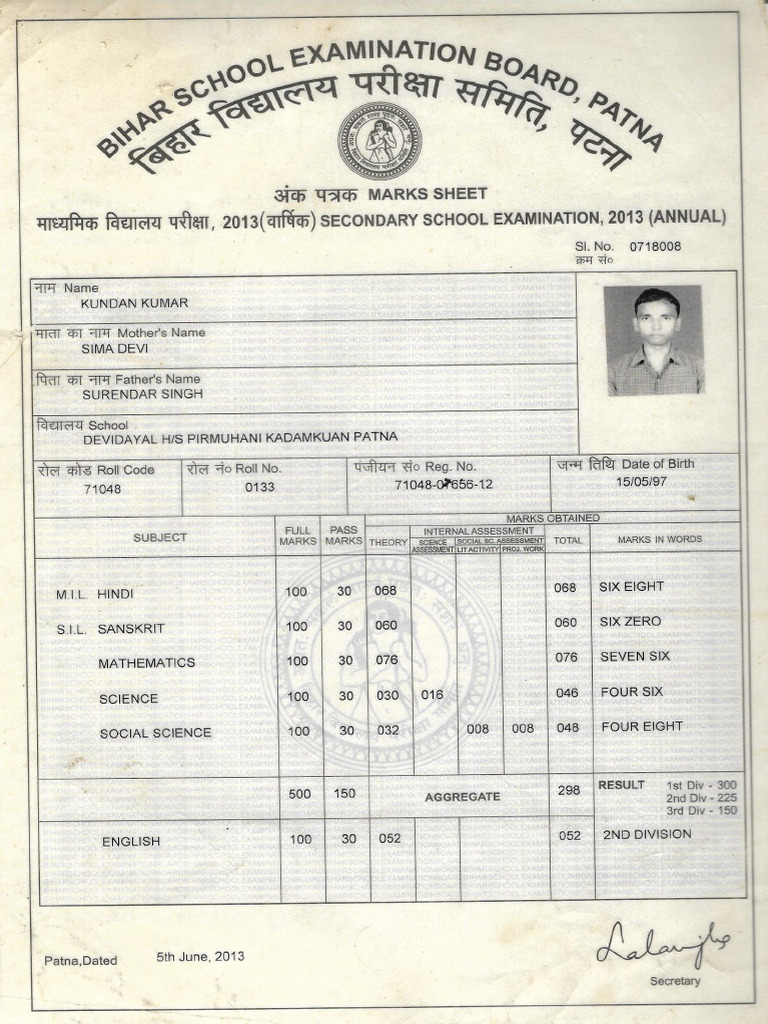 BIHAR SCHOOL EXAMINATION BOARD, PATNA
बिहार विद्यालय परीक्षा समिति, पटना
अंक पत्रक MARKS SHEET
माध्यमिक विद्यालय परीक्षा, 2013(वार्षिक) SECONDARY SCHOOL EXAMINATION, 2013 (ANNUAL)
Sl. No. 0718008
क्रम सं०
नाम Name
KUNDAN KUMAR
माता का नाम Mother's Name
SIMA DEVI
पिता का नाम Father's Name
SURENDAR SINGH
विद्यालय School
DEVIDAYAL H/S PIRMUHANI KADAMKUAN PATNA
रोल कोड Roll Code रोल नं० Roll No. पंजीयन सं० Reg. No. जन्म तिथि Date of Birth
71048 0133 71048-07656-12 15/05/97
MARKS OBTAINED
SUBJECT FULL MARKS PASS MARKS THEORY INTERNAL ASSESSMENT TOTAL MARKS IN WORDS
SCIENCE ASSESSMENT SOCIAL SC. ASSESSMENT
LIT ACTIVITY PROJ. WORK
M.I.L. HINDI 100 30 068 068 SIX EIGHT
S.I.L. SANSKRIT 100 30 060 060 SIX ZERO
MATHEMATICS 100 30 076 076 SEVEN SIX
SCIENCE 100 30 030 016 046 FOUR SIX
SOCIAL SCIENCE 100 30 032 008 008 048 FOUR EIGHT
500 150 AGGREGATE 298 RESULT 1st Div - 300
2nd Div - 225
3rd Div - 150
ENGLISH 100 30 052 052 2ND DIVISION
Patna,Dated 5th June, 2013
Secretary